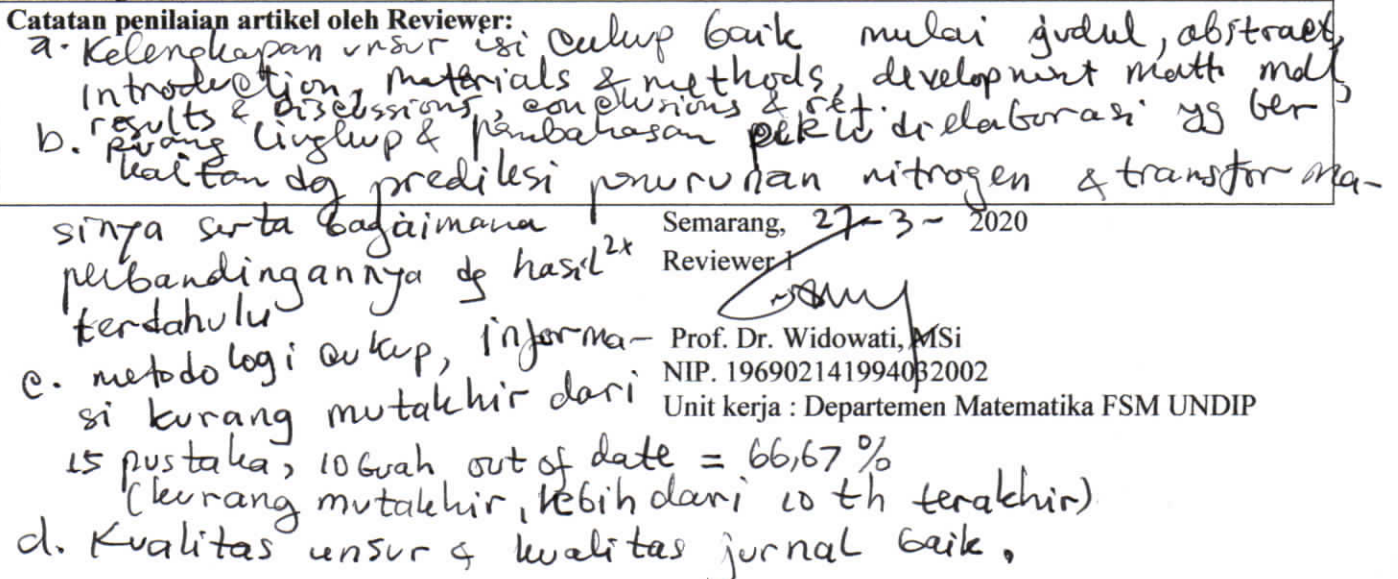 Catatan penilaian artikel oleh Reviewer:
a. Kelengkapan unsur isi cukup baik mulai judul, abstract,
introduction, materials & methods, development math mdl,
results & discussions, conclusions & ref.
b. ruang lingkup & pembahasan perlu dielaborasi yg ber
kaitan dg prediksi penurunan nitrogen & transforma-
sinya serta bagaimana
perbandingannya dg hasil2x
terdahulu
c. metodologi cukup, informa-
si kurang mutakhir dari
15 pustaka, 10 buah out of date = 66,67 %
(kurang mutakhir, lebih dari 10 th terakhir)
d. Kualitas unsur & kualitas jurnal baik.
Semarang, 27-3- 2020
Reviewer 1
Prof. Dr. Widowati, MSi
NIP. 196902141994032002
Unit kerja : Departemen Matematika FSM UNDIP